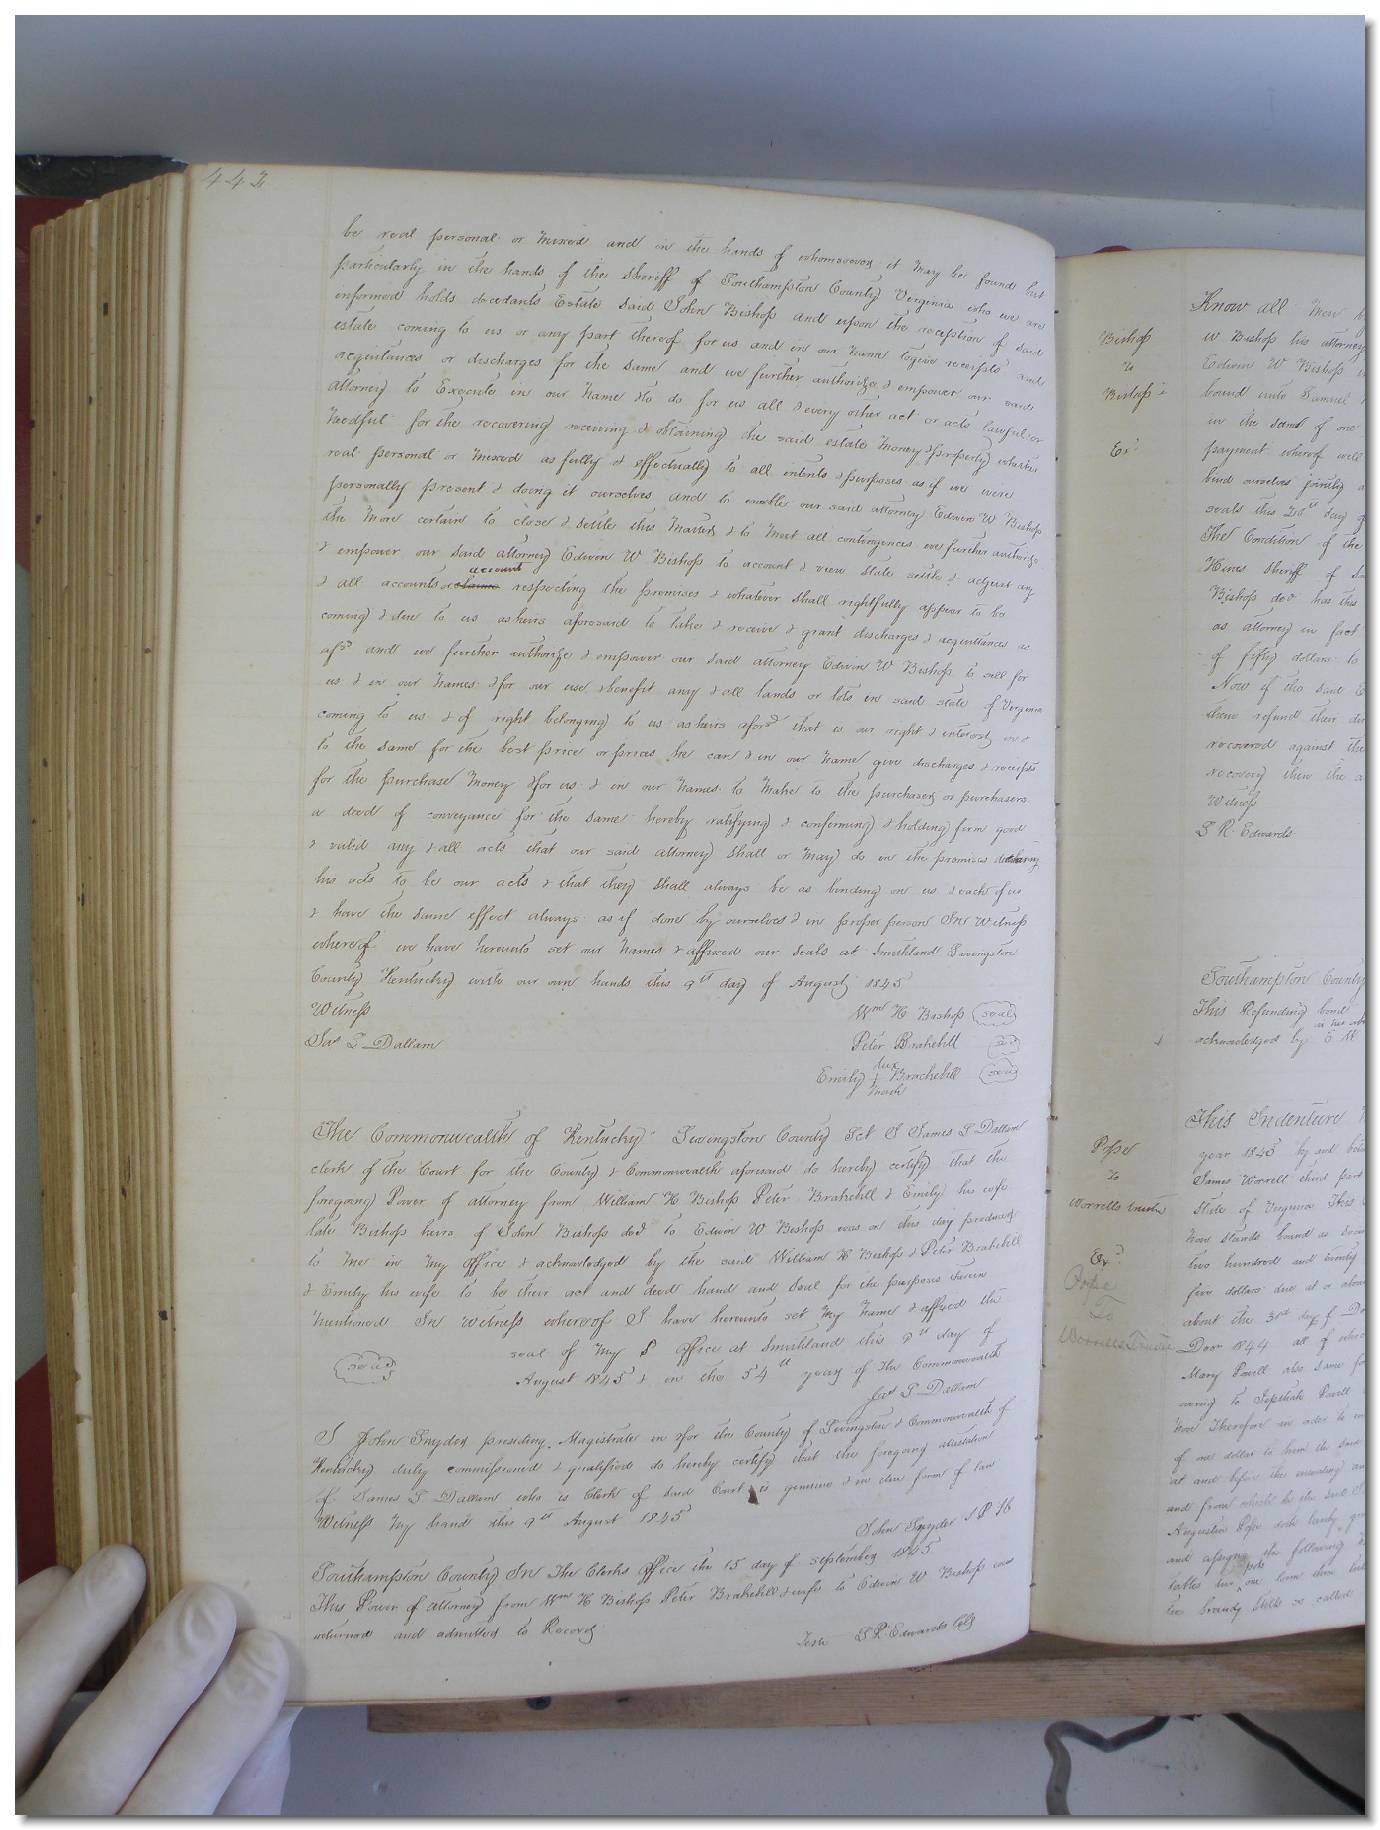 442
be real personal or mixed and in the hands of whomsoever it may be found but
particularly in the hands of the Sheriff of Southampton County Virginia who we are
informed holds decedants Estate said John Bishop and upon the reception of said
estate coming to us or any part thereof for us and in our name to give receipts and
acquittances or discharges for the same and we further authorize & empower our said
attorney to Execute in our name & to do for us all & every other act or acts lawful or
needful for the recovering receiving & obtaining the said estate money & property whether
real personal or mixed as fully & effectually to all intents & purposes as if we were
personally present & doing it ourselves and to enable our said attorney Edwin W Bishop
the more certain to close & settle this matter & to meet all contingences we further authorize
& empower our said attorney Edwin W Bishop to account & view state settle & adjust any
account
& all accounts or claims respecting the premises & whatever shall rightfully appear to be
coming & due to us as heirs aforesaid to take & receive & grant discharges & acquittances as
afsd and we further authorize & empower our said attorney Edwin W Bishop to sell for
us & in our names & for our use & benefit any & all lands or lots in said state of Virginia
coming to us & of right belonging to us as heirs aforsd that is our right & interest in &
to the same for the best price or prices he can & in our name give discharges & receipts
for the purchase money & for us & in our names to make to the purchaser or purchasers
a deed of conveyance for the same hereby ratifying & confirming & holding firm good
& valid any & all acts that our said attorney shall or may do in the premises declaring
his acts to be our acts & that they shall always be as binding on us & each of us
& have the same effect always as if done by ourselves & in proper person In witness
whereof we have hereunto set our names & affixed our seals at Smithland Livingston
County Kentucky with our own hands this 9th day of August 1845
Witness
Wm H Bishop seal
Jas L Dallam
Peter Brakebill seal
her
Emily + Brackebill seal
mark
The Commonwealth of Kentucky Livingston County Sct I James L Dallam
clerk of the Court for the County & Commonwealth aforesaid do hereby certify that the
foregoing Power of attorney from William H Bishop Peter Brakebill & Emily his wife
late Bishop heirs of John Bishop decd to Edwin W Bishop was on this day produced
to me in my office & acknowledged by the said William H Bishop & Peter Brakebill
& Emily his wife to be their act and deed hand and seal for the purposes therein
mentioned In witness whereof I have hereunto set my name & affixed the
seal of my office at Smithland this 9th day of
seal
August 1845 & in the 54th year of the Commonwealth
Jas L Dallam
I John Snyder presiding Magistrate in & for the County of Livingston & Commonwealth of
Kentucky duly commissioned & qualified do hereby certify that the foregoing attestation
of James L Dallam who is Clerk of said Court is genuine & in due form of law
Witness my hand this 9th August 1845
John Snyder
Southampton County In The Clerks office the 15 day of september 1845
This Power of attorney from Wm H Bishop Peter Brakebill & wife to Edwin W Bishop was
returned and admitted to Record
Teste L R Edwards Clk
Bishop
to
Bishop
Ex
Know all Men
W Bishop his attorney
Edwin W Bishop
bound unto Samuel
in the sum of one
payment whereof well
bind ourselves jointly
seals this 20th day
The Condition of the
Hines Sheriff of
Bishop decd has this
as attorney in fact
of fifty dollars to
Now if the said
them refund their
recovered against the
recovery then the
Witness
L R Edwards
Southampton County
This Refunding bond
acknowledged by E W
Pope
to
Worrells trustee
Ex
Pope
To
Worrells Trustee
This Indenture
year 1845 by and
James Worrell third part
State of Virginia
now stands bound as
two hundred and twenty
five dollars due at
about the 30th day of
Decr 1844 all of
Mary Powell also
owing to Jepthah Powell
Now Therefore in order to
of one dollar to him the said
at and before the ensealing
and from
Augustin Pope doth
and assign the following
tables
two brandy Stills so called